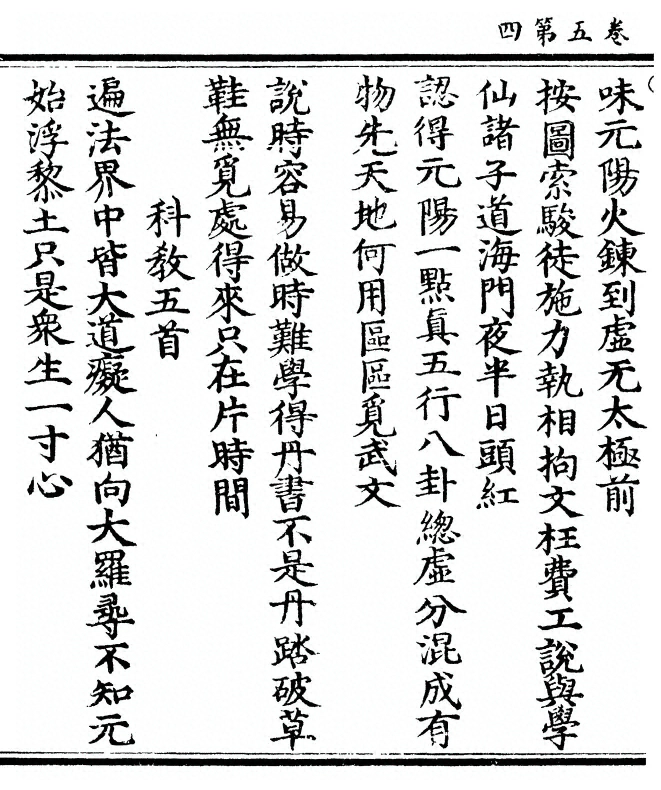 卷五第四
味元陽火鍊到虛无太極前
按圖索駿徒施力執相拘文枉費工說與學
仙諸子道海門夜半日頭紅
認得元陽一點眞五行八卦緫虛分混成有
物先天地何用區區覓武文
說時容易做時難學得丹書不是丹踏破草
鞋無覓處得來只在片時間
科教五首
遍法界中皆大道癡人猶向大羅尋不知元
始浮黎土只是衆生一寸心